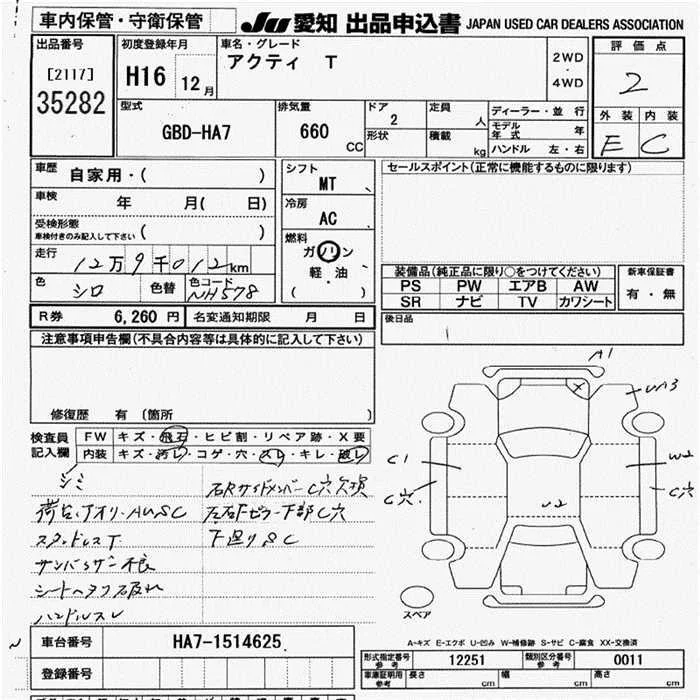 車内保管・守衛保管
JU 愛知 出品申込書 JAPAN USED CAR DEALERS ASSOCIATION
出品番号
[2117]
35282
初度登録年月
H16 12月
車名・グレード
アクティ T
2WD
・
4WD
評価点
2
外装 内装
E C
型式
GBD-HA7
排気量
660 CC
ドア
2
形状
定員
人
積載
kg
ディーラー・並行
モデル年式 年
ハンドル 左・右
車歴
自家用・( )
車検 年 月( 日)
受検形態
車検付きのみ記入して下さい ( )
走行
12万9千012km
色
シロ
色替
色コード
NH578
シフト
MT
冷房
AC
燃料
ガソリン
軽・油
( )
セールスポイント(正常に機能するものに限ります)
装備品(純正品に限り○をつけてください)
PS PW エアB AW
SR ナビ TV カワシート
新車保証書
有・無
R券 6,260円 名変通知期限 月 日
後日品
注意事項申告欄(不具合内容等は具体的に記入して下さい)
修復歴 有 (箇所 )
検査員記入欄
FW キズ・飛石・ヒビ割・リペア跡・X要
内装 キズ・汚レ・コゲ・穴・スレ・キレ・破レ
シミ
荷台、アオリ・AUSC
スタッドレスT
サンバイザー不良
シートヘタリ破れ
ハンドルスレ
右Rサイドメンバー C穴
左右Fピラー下部C穴
下廻りSC
A1
X
UA3
C1
C穴
W2
C穴
U2
スペア
A-キズ E-エクボ U-凹み W-補修跡 S-サビ C-腐食 XX-交換済
車台番号 HA7-1514625
登録番号
形式指定番号 参考 12251 類別区分番号 参考 0011
車庫証明用 参考 長さ cm 幅 cm 高さ cm